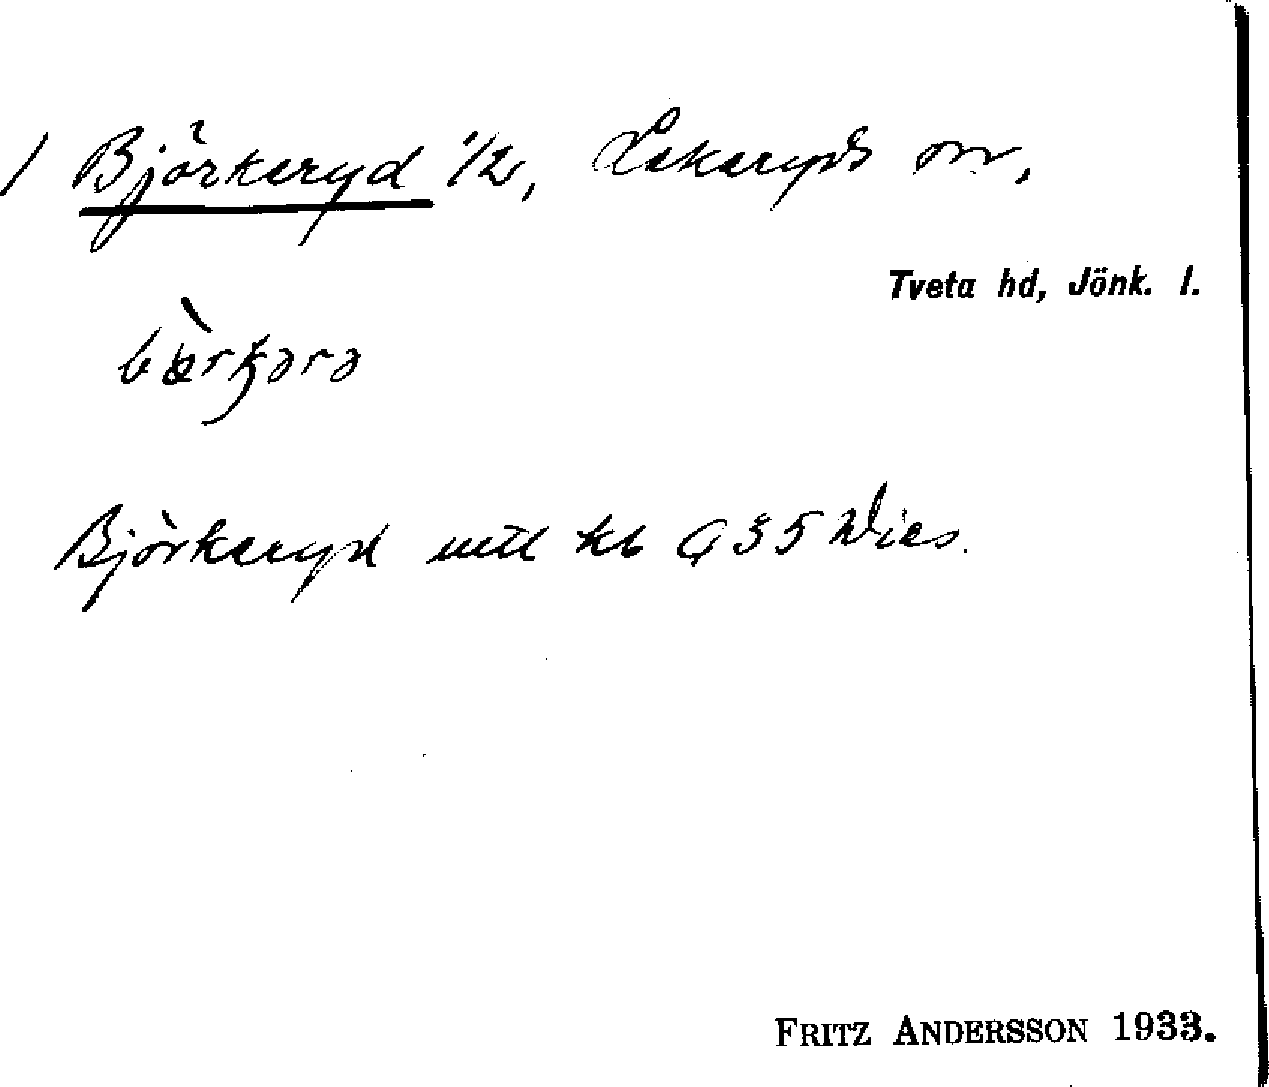 / Björkeryd 1/2, Lekeryds sn,
Tveta hd, Jönk. l.
Björkeryd utl kb G 35 Dies.
FRITZ ANDERSSON 1933.